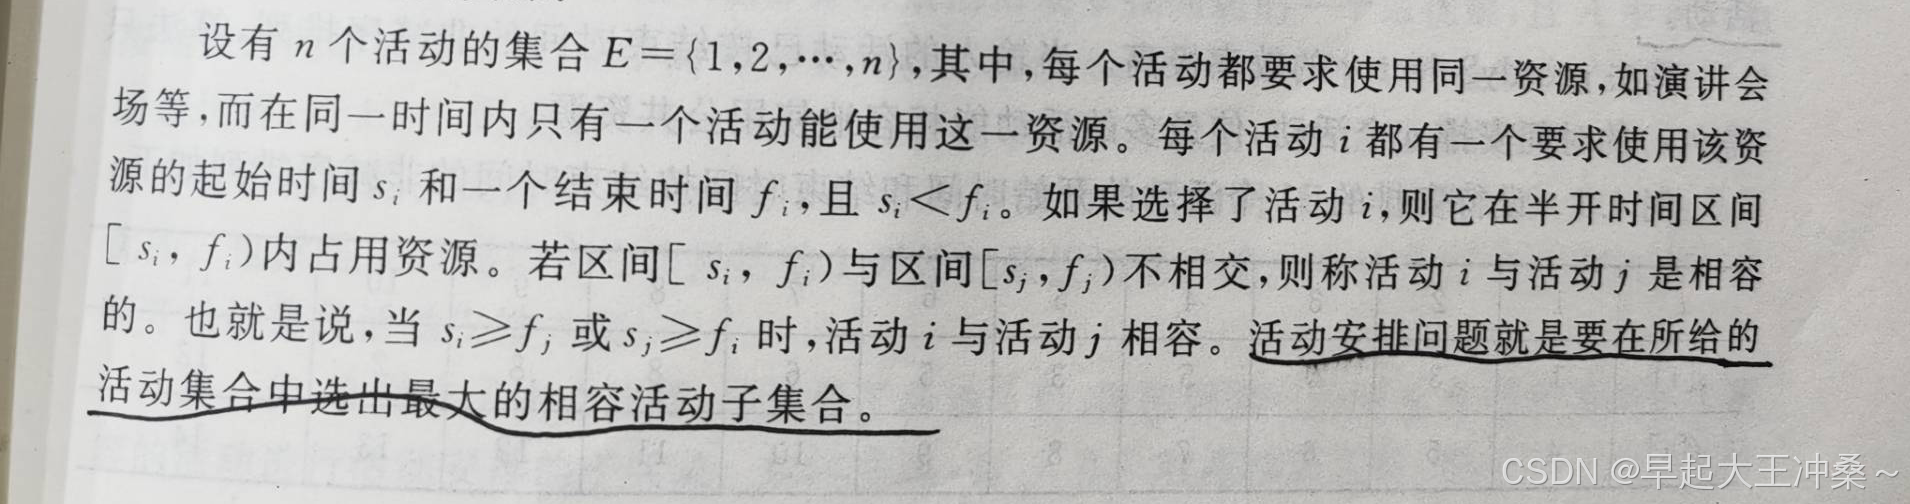 设有 n 个活动的集合 E={1,2,…,n},其中,每个活动都要求使用同一资源,如演讲会
场等,而在同一时间内只有一个活动能使用这一资源。每个活动 i 都有一个要求使用该资
源的起始时间 sᵢ 和一个结束时间 fᵢ,且 sᵢ<fᵢ。如果选择了活动 i,则它在半开时间区间
[sᵢ, fᵢ)内占用资源。若区间[sᵢ, fᵢ)与区间[sⱼ,fⱼ)不相交,则称活动 i 与活动 j 是相容
的。也就是说,当 sᵢ≥fⱼ 或 sⱼ≥fᵢ 时,活动 i 与活动 j 相容。活动安排问题就是要在所给的
活动集合中选出最大的相容活动子集合。
CSDN @早起大王冲桑~